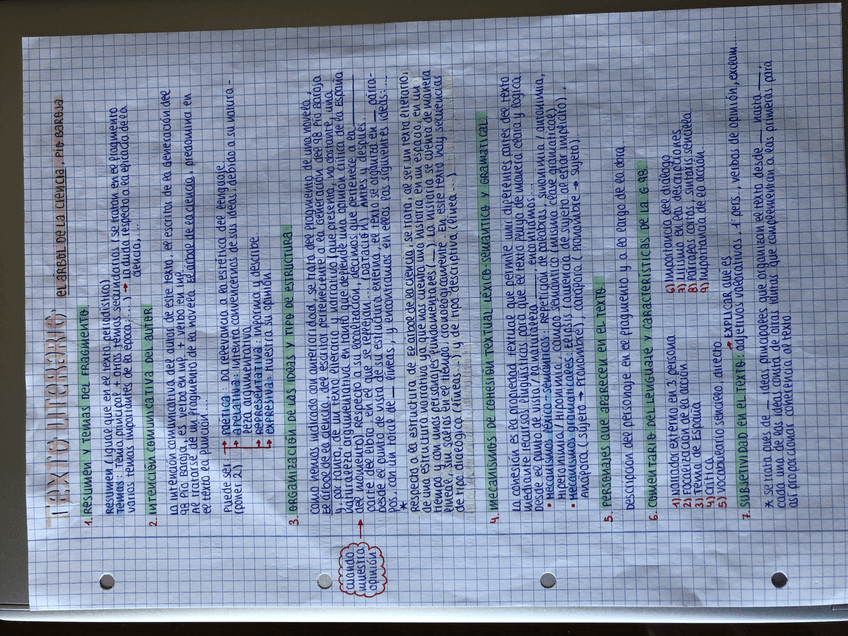 TEXTO LITERARIO, EL ÁRBOL DE LA CIENCIA - PÍO BAROJA
1. RESUMEN Y TEMAS DEL FRAGMENTO
Resumen (igual que en el texto periodístico)
Temas: Tema principal + otros temas secundarios (se tratan en el fragmento
varios temas importantes de la época...) → La duda respecto a la eficacia de la
ciencia...
2. INTENCIÓN COMUNICATIVA DEL AUTOR
La intención comunicativa del autor de este texto, el escritor de la generación del
98 Pío Baroja, es verbo en inf. + verbo en inf.
Al tratarse de un fragmento de la novela El árbol de la ciencia, predomina en
el texto la función ...
Puede ser → poética: da relevancia a la estética del lenguaje
(poner 2) → apelativa: intenta convencernos de sus ideas, debido a su natura-
leza argumentativa
→ representativa: informa y describe
→ expresiva: muestra su opinión
3. ORGANIZACIÓN DE LAS IDEAS Y TIPO DE ESTRUCTURA
Como hemos indicado con anterioridad, se trata del fragmento de una novela,
El árbol de la ciencia, del escritor perteneciente a la Generación del 98 Pío Baroja
y, por tanto, pertenece al género literario narrativo (que presenta, no obstante, una
naturaleza argumentativa en tanto que defiende una opinión crítica de la España
del momento). Respecto a su localización, decimos que pertenece a la ____
parte del libro, en la que se refiere ... (datación). Antes y después...
Desde el punto de vista de su estructura externa, el texto se organiza en __ párra-
fos, con un total de __ líneas, y encontramos en ellos las siguientes ideas: ...
cuando
muestra
opinión
*
Respecto a la estructura de El árbol de la ciencia, se trata, al ser un texto literario,
de una estructura narrativa ya que nos cuenta una historia en un espacio, en un
tiempo y con unos personajes fundamentales (__). La historia se cuenta de manera
lineal, sin saltos en el tiempo, cronológicamente. En este texto hay secuencias
de tipo dialógica (líneas ...) y de tipo descriptiva (línea ...).
4. MECANISMOS DE COHESIÓN TEXTUAL LÉXICO-SEMÁNTICO Y GRAMATICAL
La cohesión es la propiedad textual que permite unir diferentes partes del texto
mediante recursos lingüísticos para que el texto fluya de manera clara y lógica
• Mecanismos léxico-semánticos: repetición de palabras, sinonimia / antonimia,
hiperonimia / hiponimia, campo semántico (misma clase gramatical)
• Mecanismos gramaticales: elipsis (ausencia de sujeto al estar implícito),
anáfora (sujeto → pronombre), catáfora (pronombre → sujeto).
5. PERSONAJES QUE APARECEN EN EL TEXTO
Descripción del personaje en el fragmento y a lo largo de la obra
6. COMENTARIO DEL LENGUAJE Y CARACTERÍSTICAS DE LA G.98
1) Narrador externo en 3 persona
2) Localización de la acción
3) Tema de España
4) Crítica
5) Vocabulario sencillo, directo
6) Importancia del diálogo
7) Lirismo en las descripciones
8) Párrafos cortos, sintaxis sencilla
9) Importancia de la acción
→ EXPLICAR QUÉ ES
7. SUBJETIVIDAD EN EL TEXTO: adjetivos valorativos, 1 pers., verbos de opinión, exclam
* Se trata pues de __ ideas principales que organizan el texto desde ___ hasta ___,
cada una de las ideas consta de otras ideas que complementan a las primeras para
así proporcionar coherencia al texto